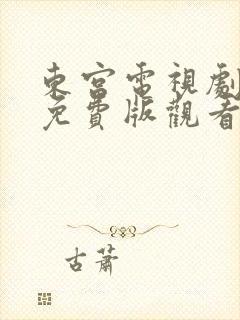 東宮電視劇
免費版觀看
古蕭